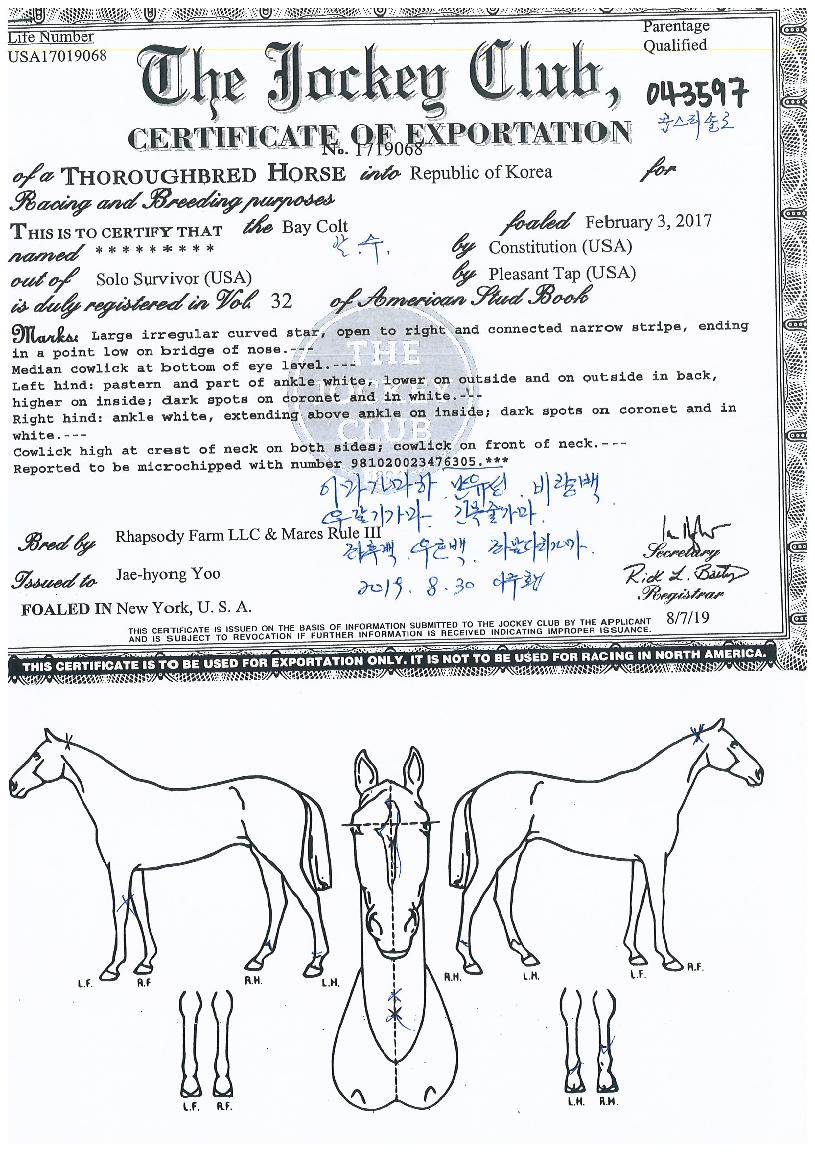 Life Number
USA17019068
Parentage
Qualified
The Jockey Club,
043597
CERTIFICATE OF EXPORTATION
No. 1719068
of a THOROUGHBRED HORSE into Republic of Korea for
Racing and Breeding purposes
THIS IS TO CERTIFY THAT the Bay Colt foaled February 3, 2017
named * * * * * * * * * by Constitution (USA)
out of Solo Survivor (USA) by Pleasant Tap (USA)
is duly registered in Vol. 32 of American Stud Book
Marks: Large irregular curved star, open to right and connected narrow stripe, ending
in a point low on bridge of nose.---
Median cowlick at bottom of eye level.---
Left hind: pastern and part of ankle white, lower on outside and on outside in back,
higher on inside; dark spots on coronet and in white.---
Right hind: ankle white, extending above ankle on inside; dark spots on coronet and in
white.---
Cowlick high at crest of neck on both sides; cowlick on front of neck.---
Reported to be microchipped with number 981020023476305.***
THE
JOCKEY
CLUB
Bred by Rhapsody Farm LLC & Mares Rule III
Secretary
Issued to Jae-hyong Yoo
2019. 8. 30
Rick L. Bailey
Registrar
FOALED IN New York, U. S. A.
8/7/19
THIS CERTIFICATE IS ISSUED ON THE BASIS OF INFORMATION SUBMITTED TO THE JOCKEY CLUB BY THE APPLICANT
AND IS SUBJECT TO REVOCATION IF FURTHER INFORMATION IS RECEIVED INDICATING IMPROPER ISSUANCE.
THIS CERTIFICATE IS TO BE USED FOR EXPORTATION ONLY. IT IS NOT TO BE USED FOR RACING IN NORTH AMERICA.
L.F. R.F. R.H. L.H. R.H. L.H. L.F. R.F.
L.F. R.F. L.H. R.H.